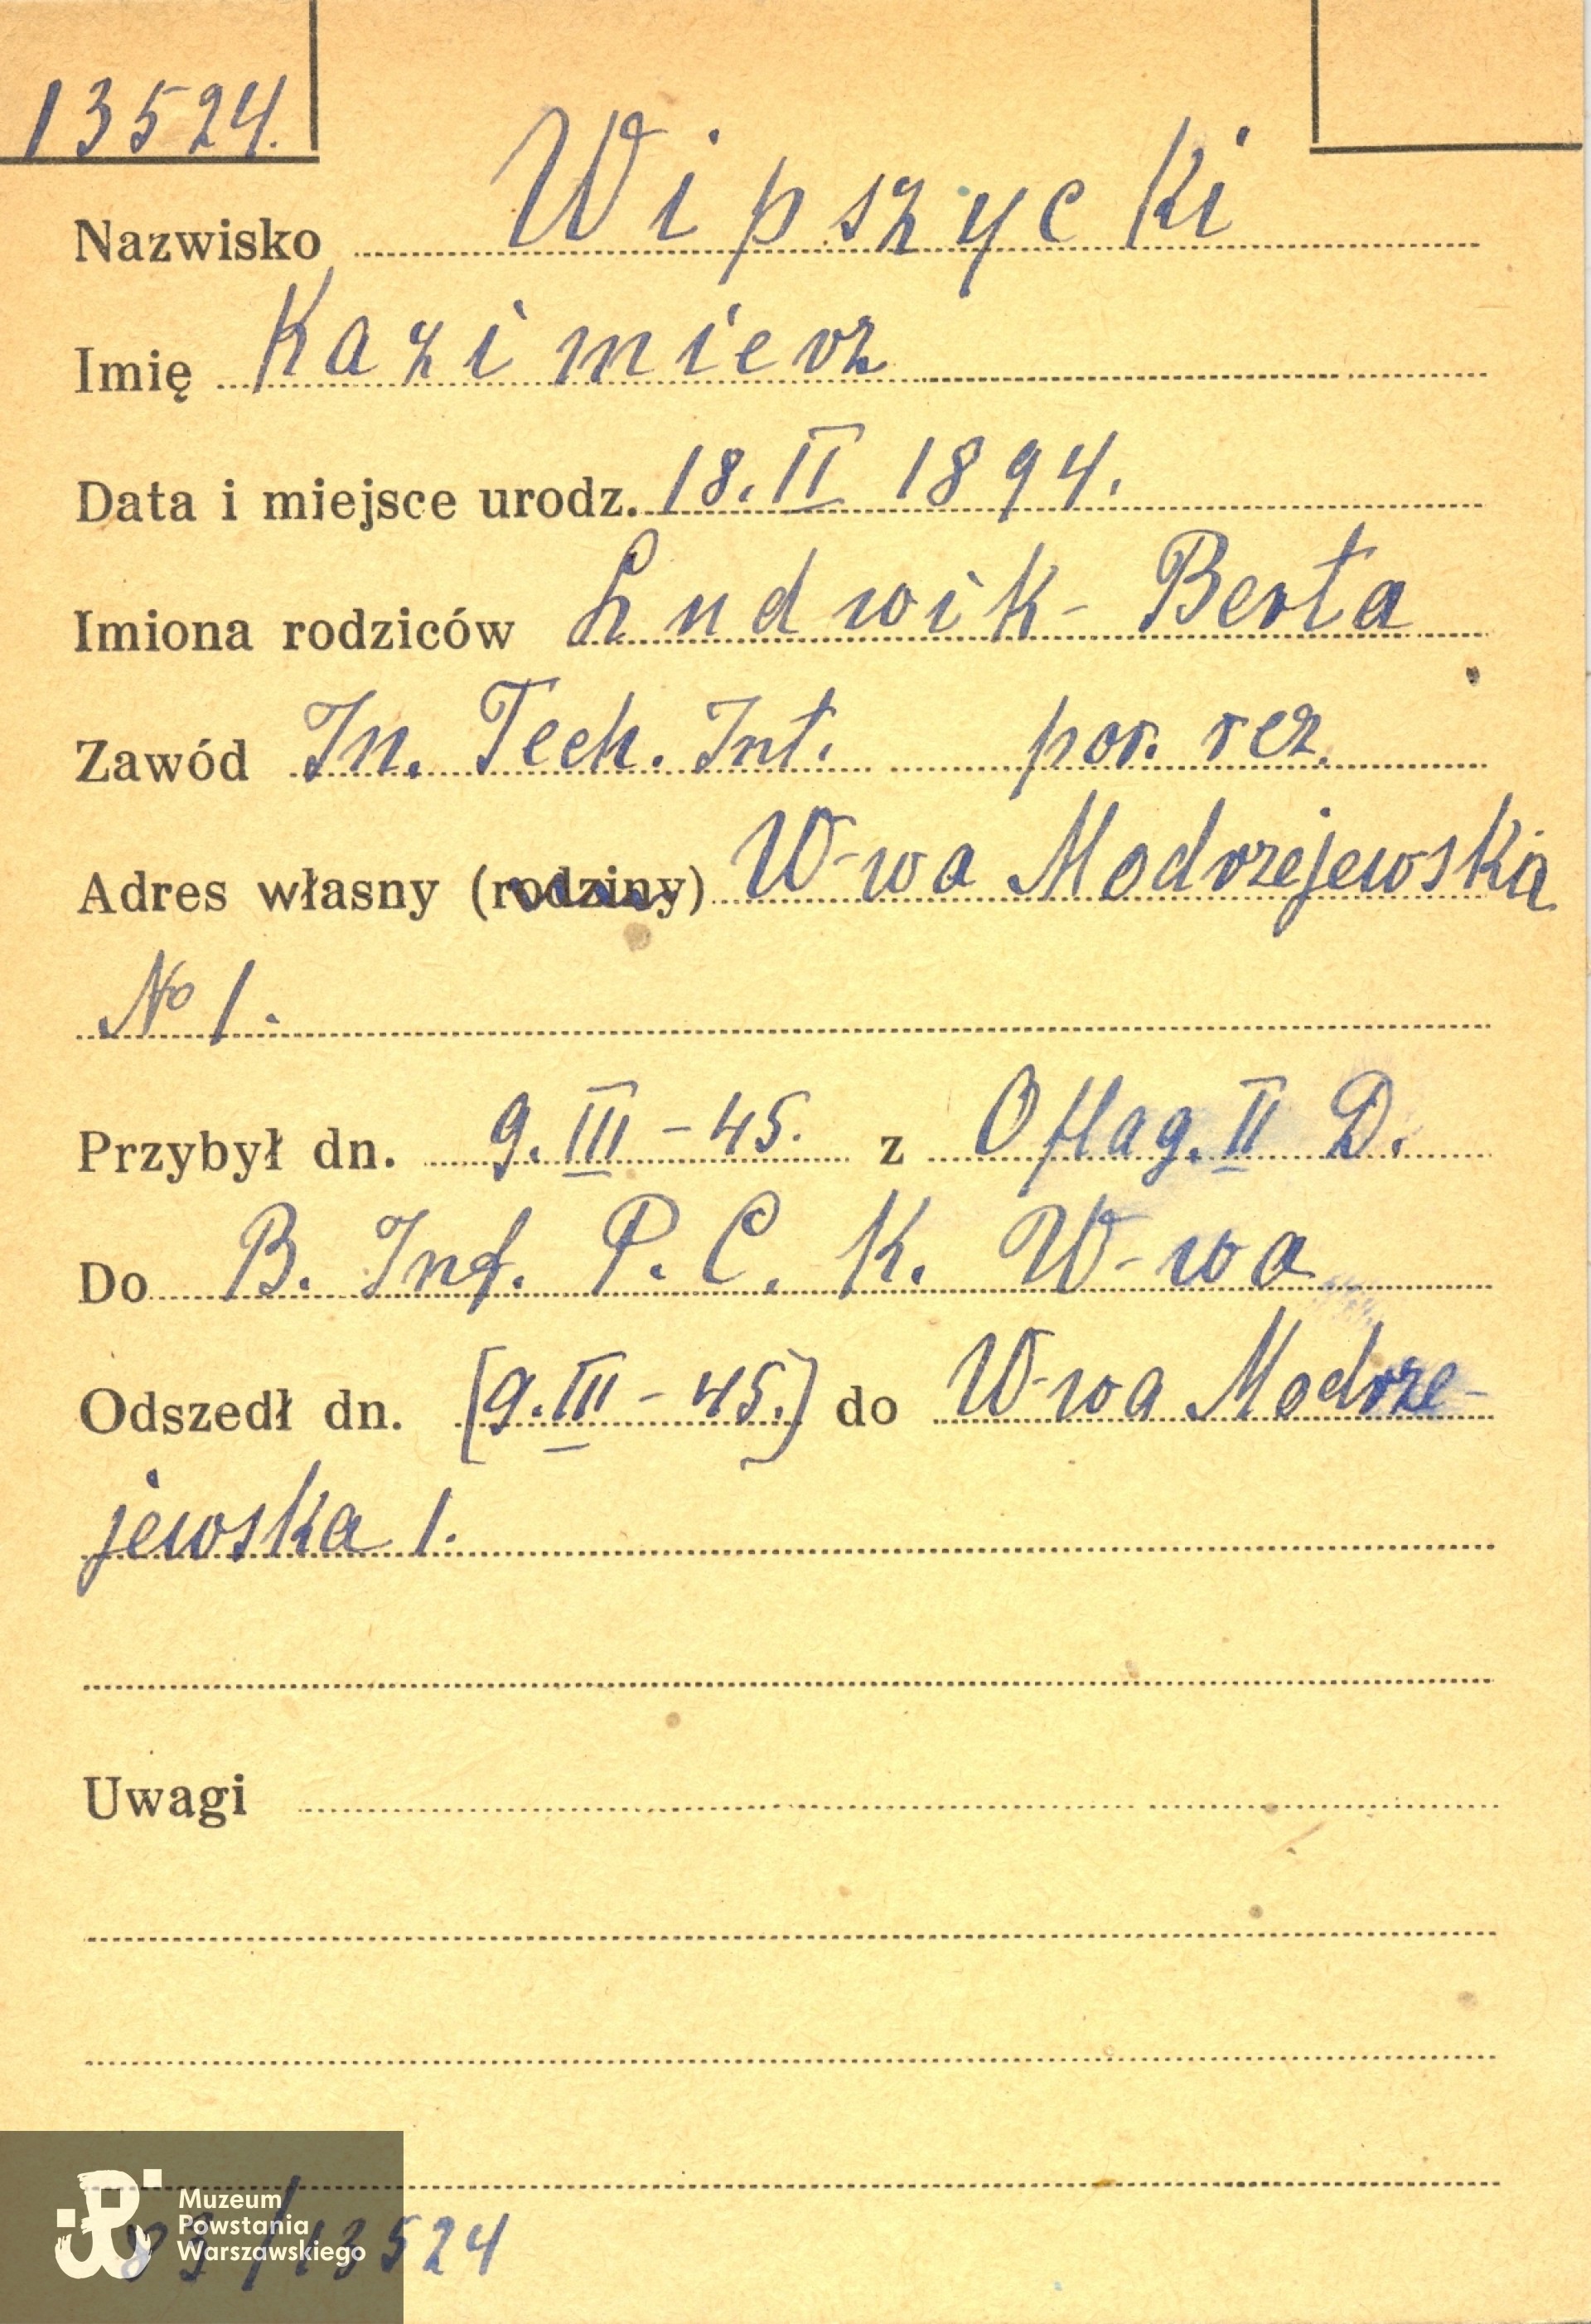 13524.
Nazwisko Wipszycki
Imię Kazimierz
Data i miejsce urodz. 18. II 1894.
Imiona rodziców Ludwik - Berta
Zawód In. Tech. Int. por. rez.
Adres własny (rodziny) W-wa Modrzejewska
No 1.
Przybył dn. 9. III - 45. z Oflag. II D.
Do B. Inf. P. C. K. W-wa
Odszedł dn. [9. III - 45.] do W-wa Modrze-
jewska 1.
Uwagi
83/13524
Muzeum
Powstania
Warszawskiego